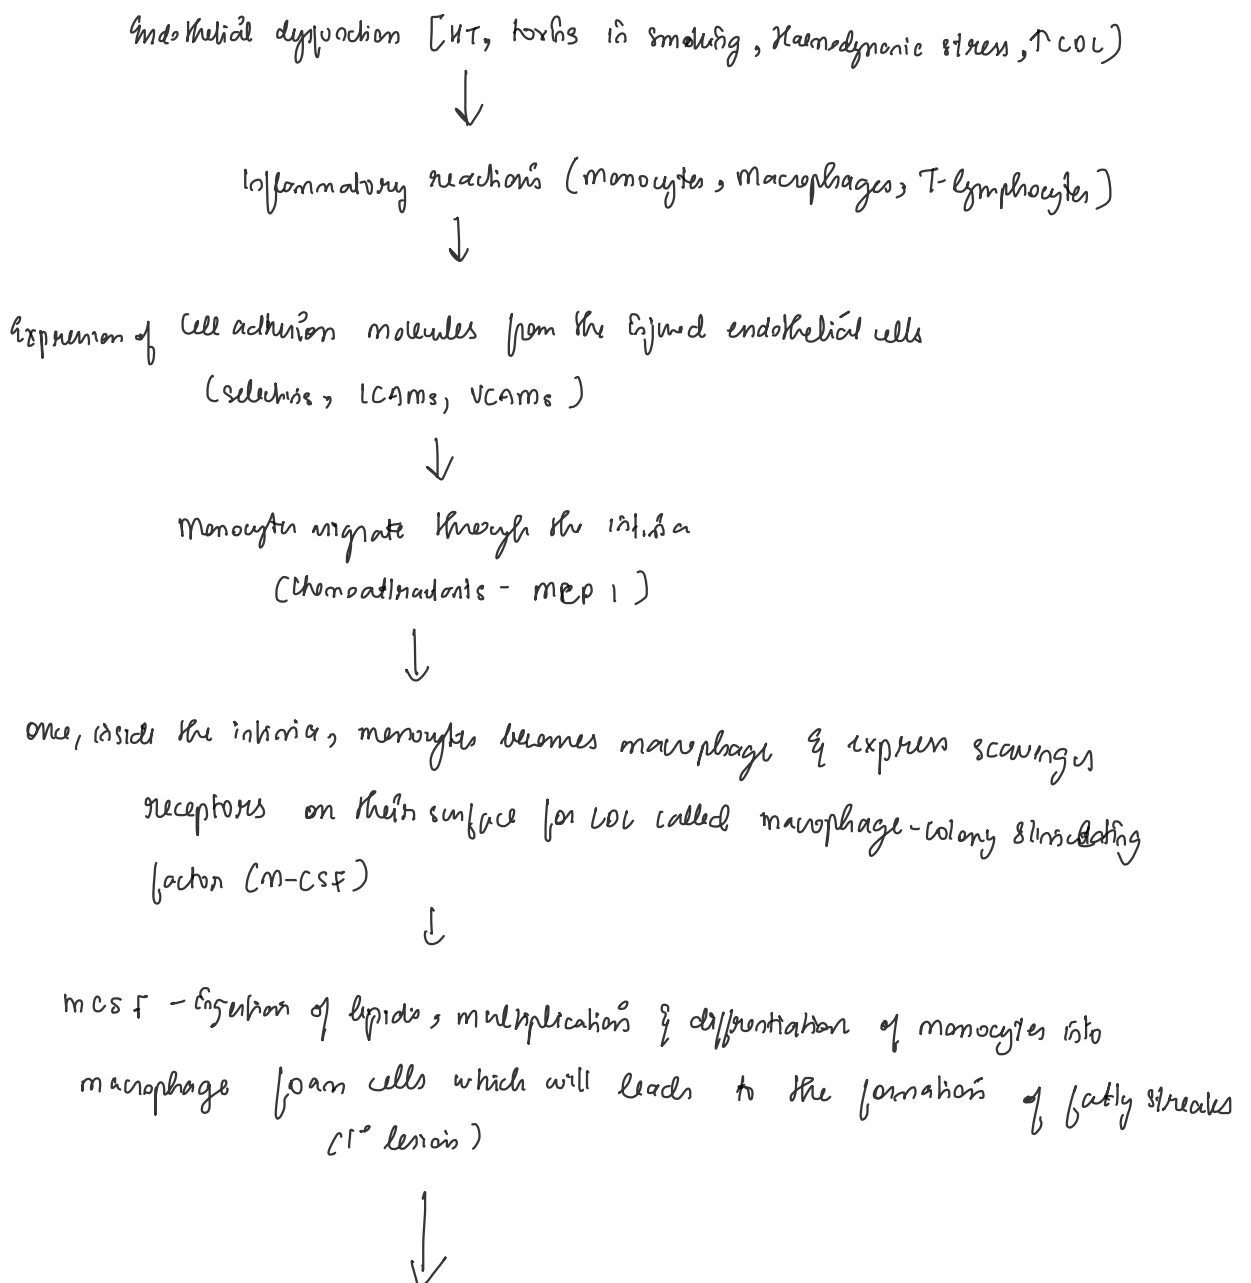 Endothelial dysfunction [HT, toxins in smoking, Haemodynamic stress, ↑ LDL]
↓
Inflammatory reactions (monocytes, macrophages, T-lymphocytes)
↓
Expression of cell adhesion molecules from the injured endothelial cells
(selectins, ICAMs, VCAMs)
↓
Monocytes migrate through the intima
(chemoattractants - MCP 1)
↓
once, inside the intima, monocytes becomes macrophage & express scavenges
receptors on their surface for LDL called macrophage-colony stimulating
factor (M-CSF)
↓
MCSF - Ingestion of lipids, multiplication & diffrentiation of monocytes into
macrophage foam cells which will leads to the formation of fatty streaks
(1° lesion)
↓